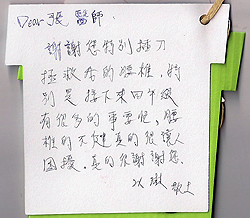 Dear 張醫師：
謝謝您特別撥刀
拯救我的腰椎，特
別是接下來四年級
有很多的事要忙，腰
椎的不健真的很讓人
困擾。真的很謝謝您。
敬上